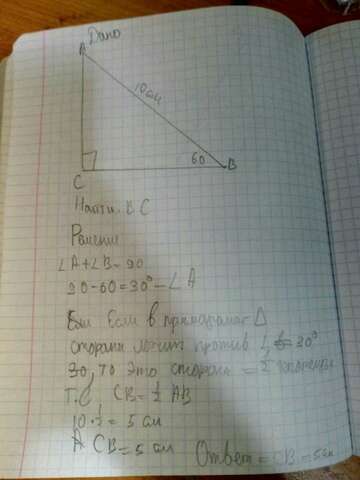 Дано
A
10 см
60
B
C
Найти BC
Решение
∠A+∠B=90
90-60=30° - ∠A
Если в прямоугол Δ
сторона лежит против ∠ = 30°
30, то эта сторона = 1/2
CB = 1/2 AB
10 · 1/2 = 5 см
CB = 5 см Ответ = CB = 5 см